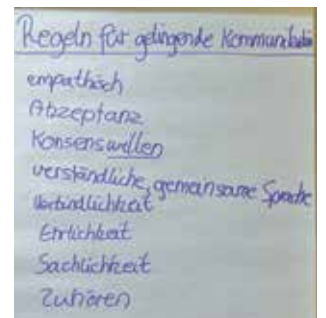 Regeln für gelingende Kommunikation
empathisch
Abzeptanz
Konsenswillen
verständliche, gemeinsame Sprache
Verbindlichkeit
Ehrlichkeit
Sachlichkeit
Zuhören